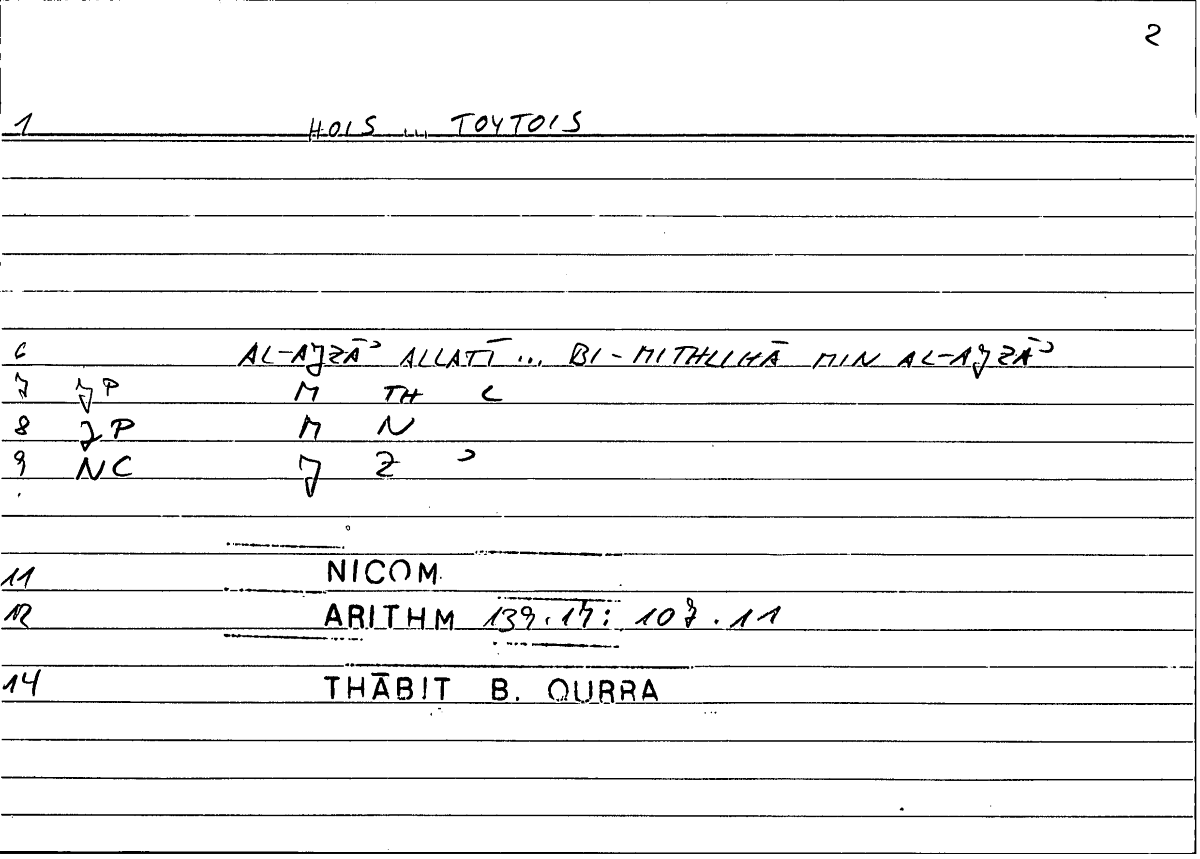 2
1 HOIS ... TOYTOIS
6 AL-AJZĀʾ ALLATĪ ... BI-MITHLIHĀ MIN AL-AJZĀʾ
7 JP M TH L
8 JP M N
9 NC J Z ʾ
11 NICOM
12 ARITHM 139.17: 107.11
14 THĀBIT B. QURRA